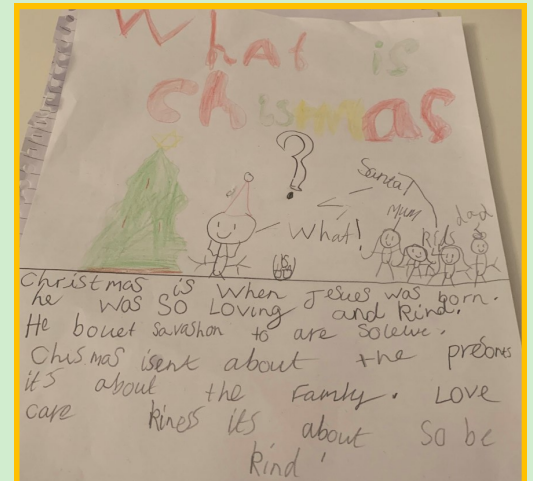 What is
chismas
?
Santa!
Mum
kids
dad
What!
Christmas is when Jesues was born.
he was SO Loving and kind.
He bouet savashon to are solewe.
Chismas isent about the presents
it's about the Family. LOVE
care kiness its about so be
kind!